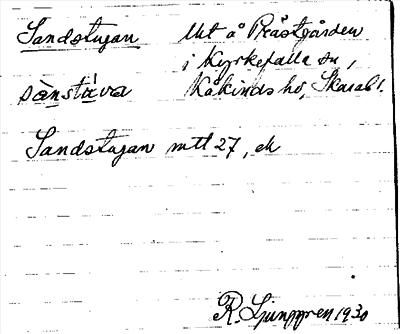 Sandstugan Ut å Prästgården
i Kyrkefalla sn,
sànstù̱va Kåkinds hd, Skarab l.
Sandstugan mtl 27, ek
R. Ljunggren 1930